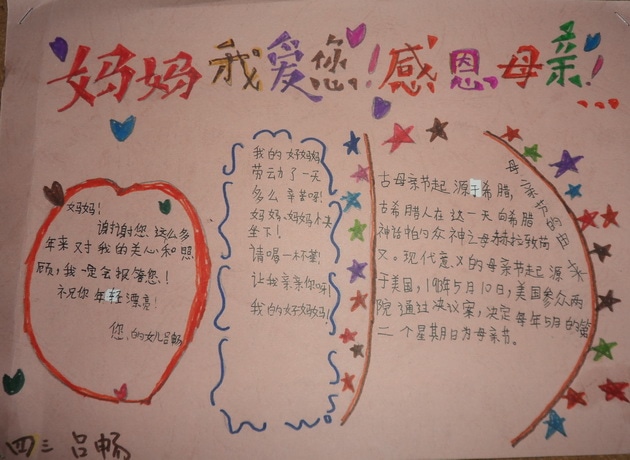 妈妈我爱您!感恩母亲!...
妈妈!
谢谢您这么多
年来对我的关心和照
顾,我一定会报答您!
祝您年轻漂亮!
您的女儿吕畅
我的好妈妈
劳动了一天
多么辛苦呀!
妈妈,妈妈快
坐下!
请喝一杯茶!
让我亲亲你呀
我的好妈妈!
母亲节的由来
古母亲节起源于希腊,
古希腊人在这一天向希腊
神话中的众神之母赫拉致敬
义。现代意义的母亲节起源
于美国,1913年5月10日,美国参众两
院通过决议案,决定每年5月的第
二个星期日为母亲节。
四三 吕畅